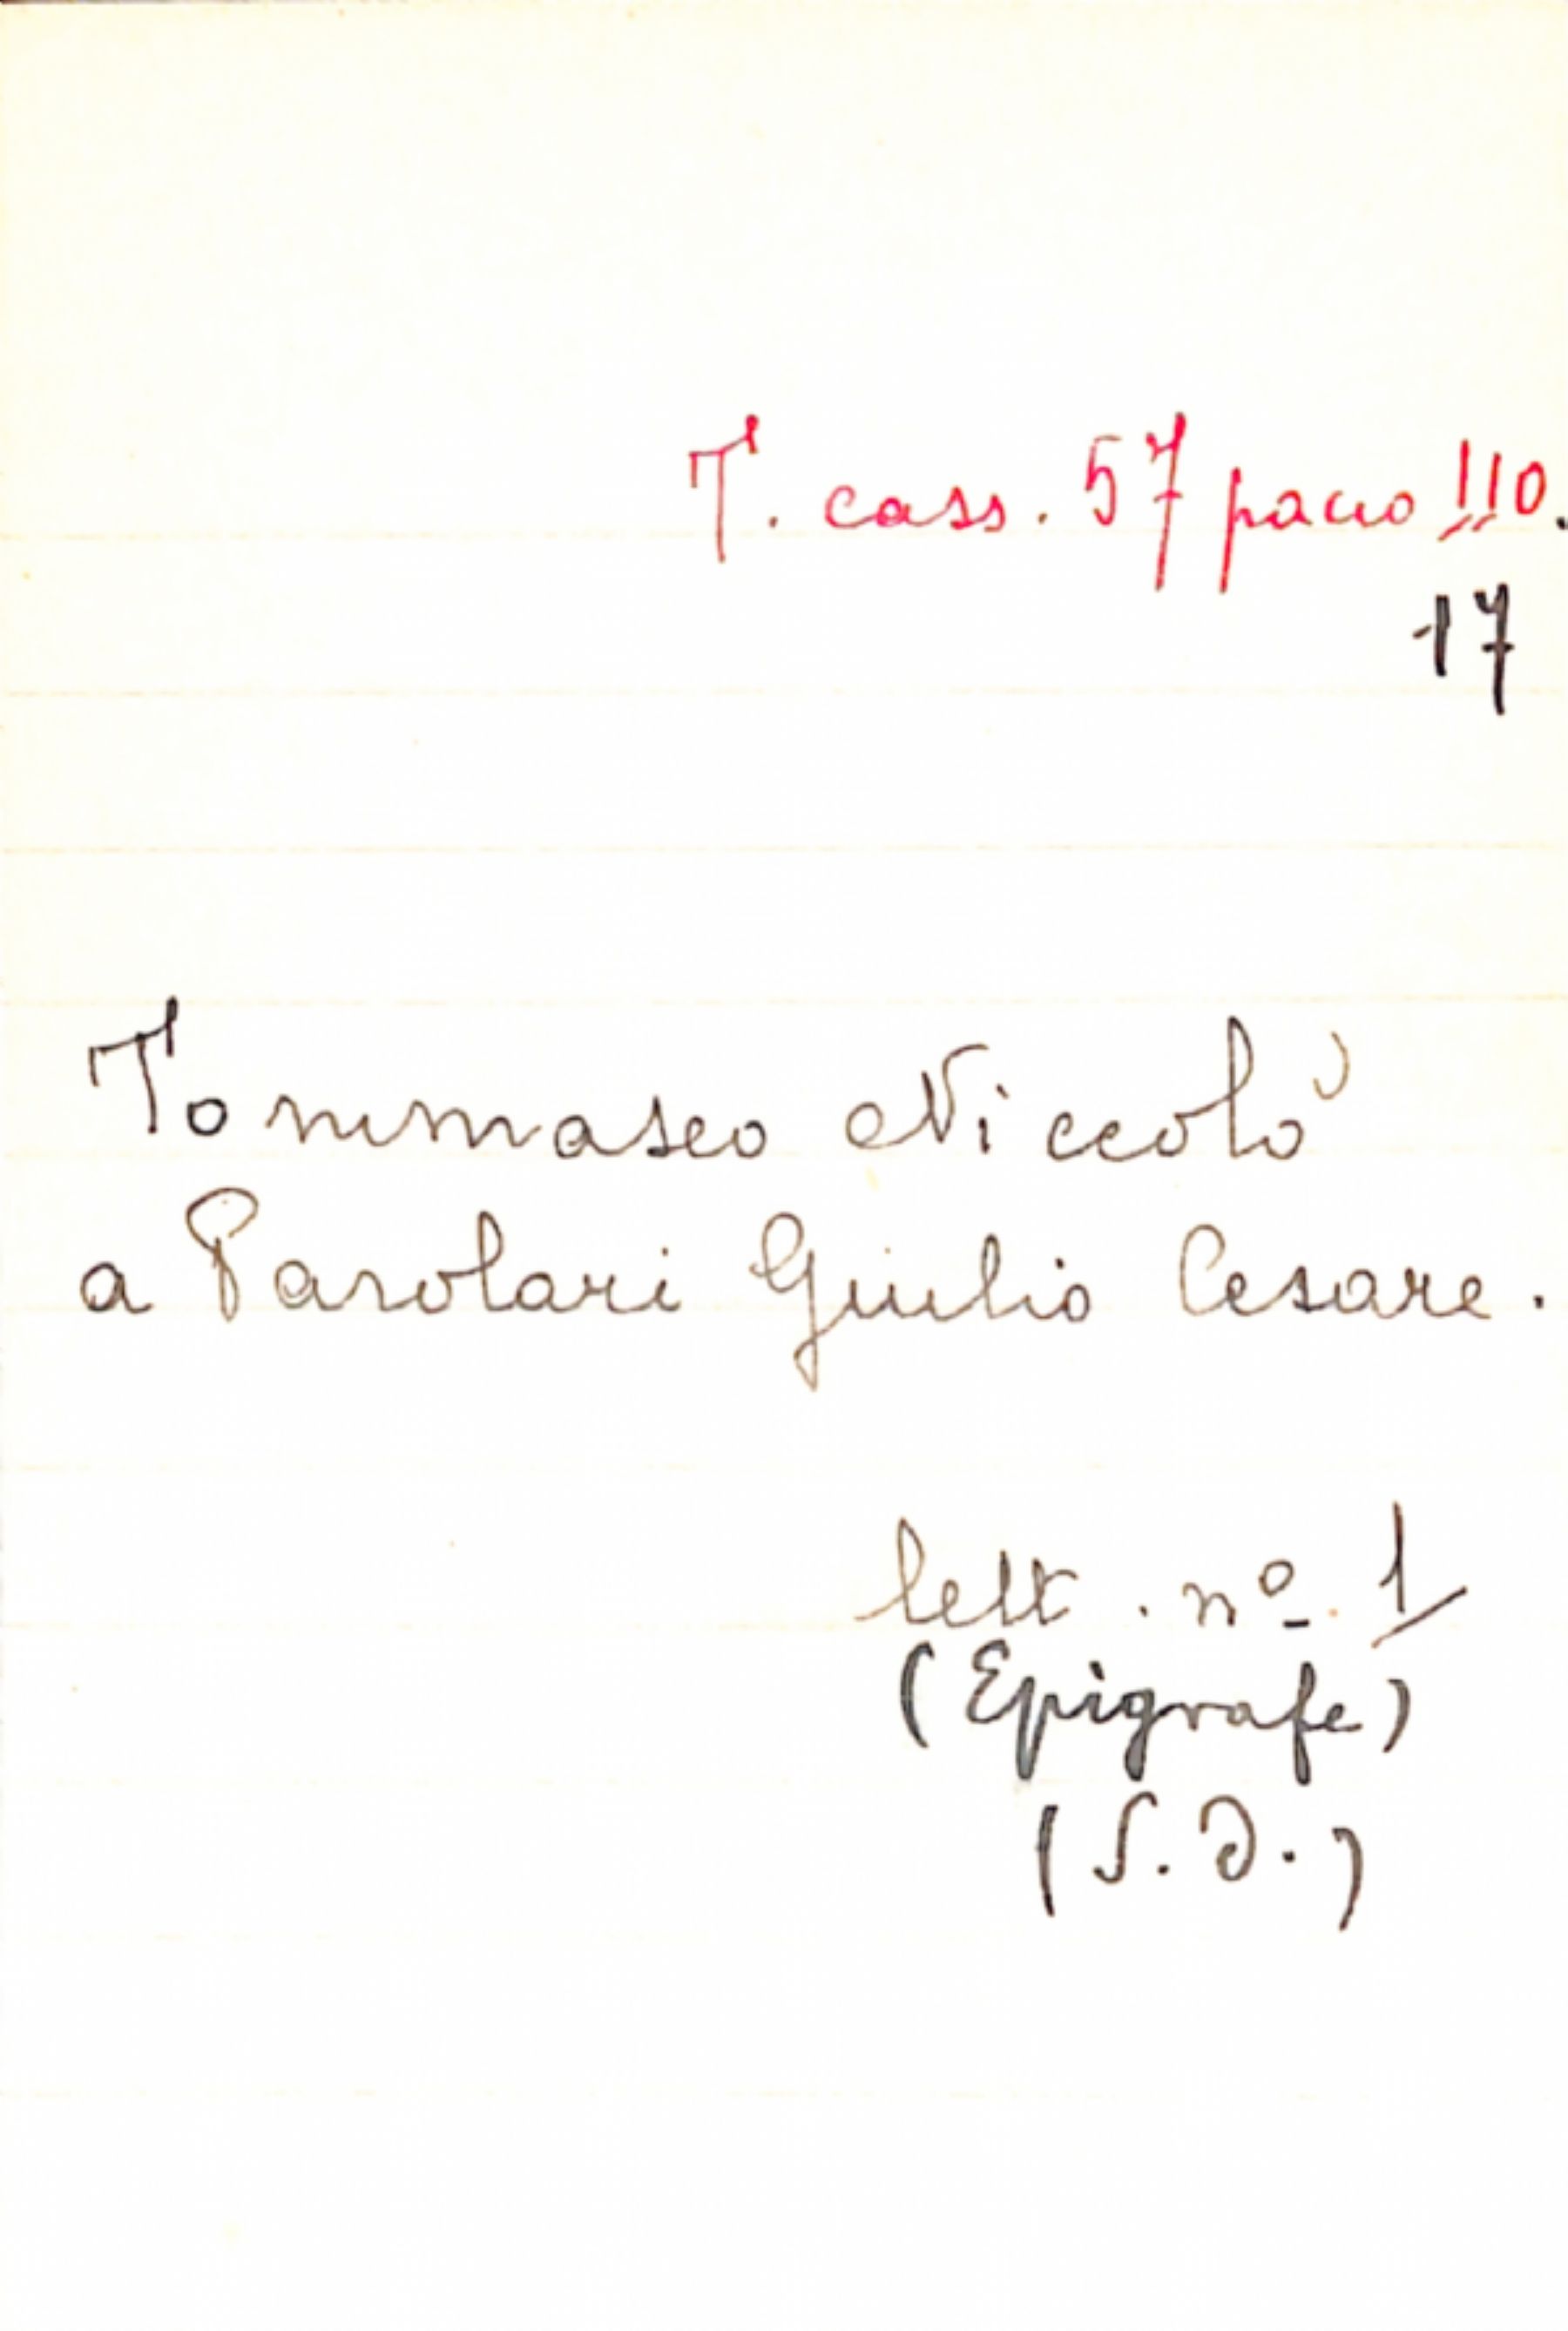 T. cass. 57 pacco 110.
17
Tommaseo Niccolò
a Parolari Giulio Cesare.
lett. nº. 1
(Epigrafe)
(S. D.)